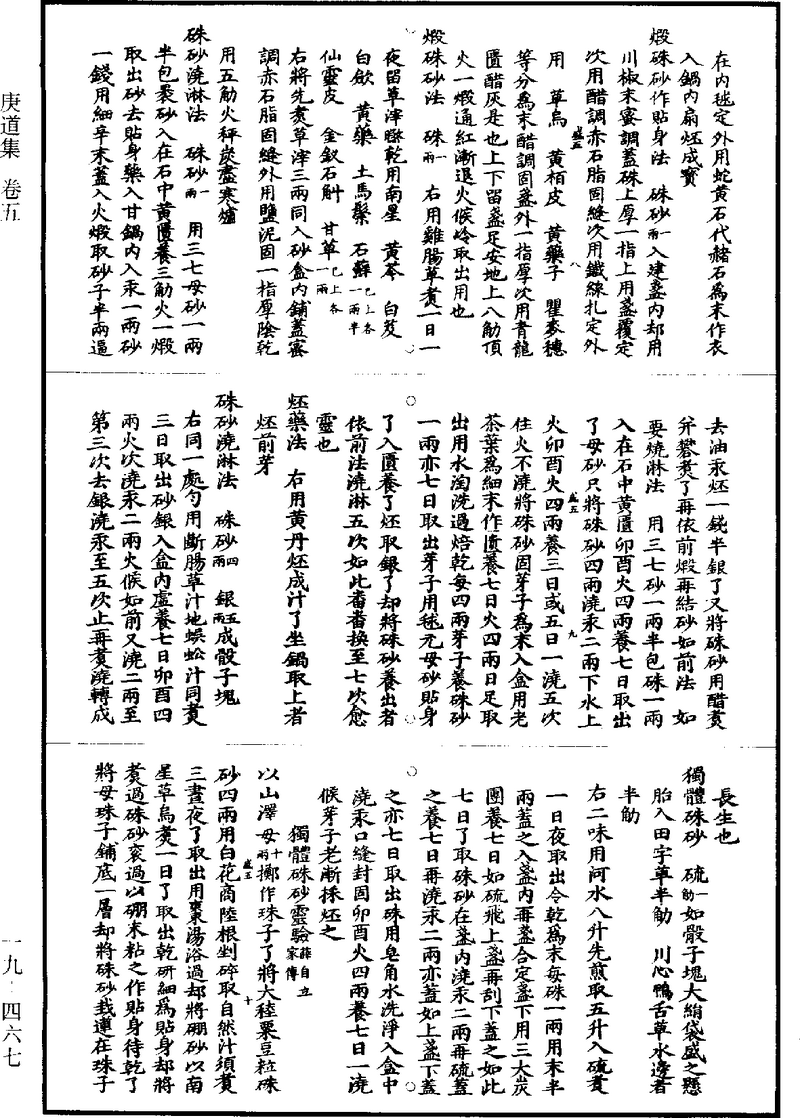 庚道集 卷五
一九·四六七
在內毬定外用蛇黃石代赭石爲末作衣
入鍋內扇烴成寶
煅硃砂作貼身法 硃砂一兩入建盞內却用
川椒末蜜調蓋硃上厚一指上用盞覆定
次用醋調赤石脂固縫次用鐵線扎定外
用 草烏 黃栢皮 黃藥子 瞿麥穗
等分爲末醋調固盞外一指厚次用青龍
匱醋灰是也上下留盞足安地上八觔頂
火一煅通紅漸退火候冷取出用也
煅硃砂法 硃一兩 右用雞腸草煮一日一
夜留草滓𣊬乾用南星 黃芩 白芨
白歛 黃藥 土馬鬃 石蘚已上各一兩半
仙靈皮 金釵石斛 甘草已上各一兩
右將先煮草滓三兩同入砂盒內鋪蓋蜜
調赤石脂固縫外用鹽泥固一指厚陰乾
用五觔火秤炭盡寒爐
硃砂澆淋法 硃砂一兩 用三七母砂一兩
半包裹砂入在石中黃匱養三觔火一煅
取出砂去貼身藥入甘鍋內入汞一兩砂
一錢用細辛末蓋入火煅取砂子半兩逼
去油汞烴一錢半銀了又將硃砂用醋煮
并礬煮了再依前煅再結砂如前法 如
要燒淋法 用三七砂一兩半包硃一兩
入在石中黃匱卯酉火四兩養七日取出
了母砂只將硃砂四兩澆汞二兩下水上
火卯酉火四兩養三日或五日一澆五次
住火不澆將硃砂固芽子爲末入盒用老
茶葉爲細末作匱養七日火四兩日足取
出用水淘洗過焙乾每四兩芽子養硃砂
一兩亦七日取出芽子用毬元母砂貼身
了入匱養了烴取銀了却將硃砂養出者
依前法澆淋五次如此畨畨換至七次愈
靈也
烴藥法 右用黃丹烴成汁了坐鍋取上者
烴前芽
硃砂澆淋法 硃砂四兩 銀五兩成骰子塊
右同一處勺用斷腸草汁地蜈蚣汁同煮
三日取出砂銀入盒內虛養七日卯酉四
兩火次澆汞二兩火候如前又澆二兩至
第三次去銀澆汞至五次止再煮澆轉成
長生也
獨體硃砂 硫一觔如骰子塊大絹袋盛之懸
胎入田字草半觔 川心鴨舌草水邊者
半觔
右二味用河水八升先煎取五升入硫煮
一日夜取出令乾爲末每硃一兩用末半
兩蓋之入盞內再盞合定盞下用三大炭
團養七日如硫飛上盞再刮下蓋之如此
七日了取硃砂在盞內澆汞二兩再硫蓋
之養七日再澆汞二兩亦蓋如上盞下蓋
之亦七日取出硃用皂角水洗淨入盒中
澆汞口縫封固卯酉火四兩養七日一澆
候芽子老漸採烴之
獨體硃砂靈驗薛自立家傳
以山澤母十兩擲作珠子了將大稑粟豆粒硃
砂四兩用白花商陸根剉碎取自然汁煩煮
三晝夜了取出用棗湯浴過却將硼砂以南
星草烏煮一日了取出乾研細爲貼身却將
煮過硃砂衮過以硼末粘之作貼身待乾了
將母珠子鋪底一層却將硃砂栽蓮在珠子